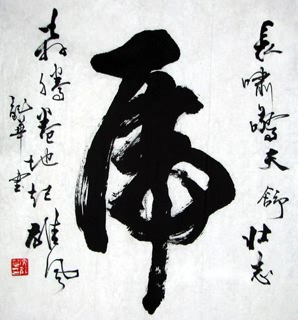 長嘯驚天舒壯志
虎
奔騰卷地起雄風
龍華書